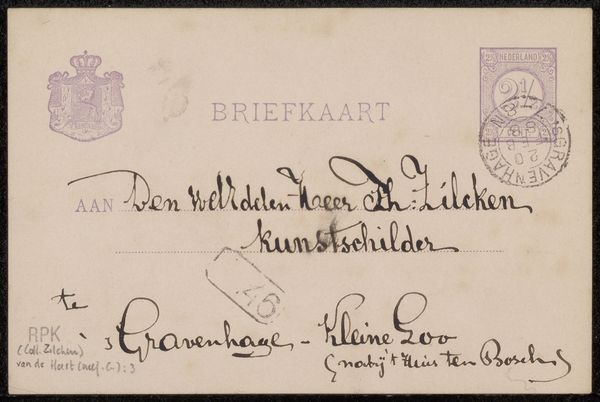 NEDERLAND
2½
BRIEFKAART
'SGRAVENHAGE
20 FEB
AAN Den WelEdelen Heer Th: Zilcken
Kunstschilder
46
te
's Gravenhage - Kleine Loo
(nabij 't Huis ten Bosch)
RPK
(Coll. Zilcken)
van de Hart (mej. C.): 3